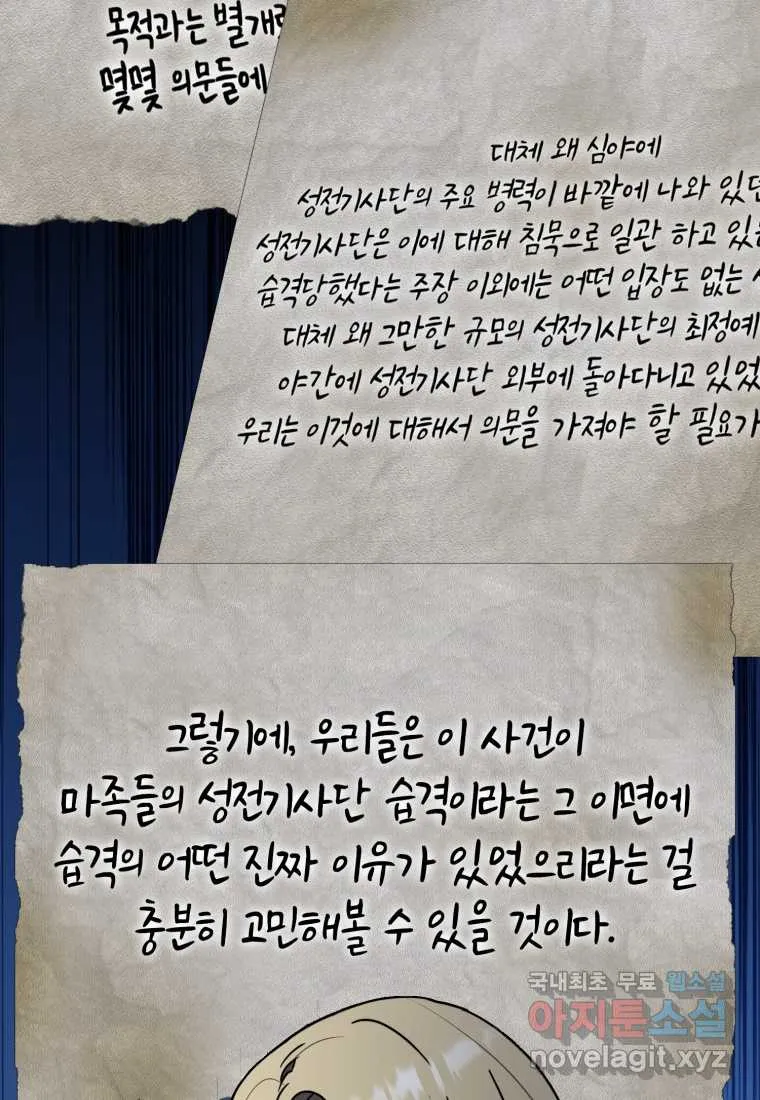 목적과는 별개
몇몇 의문들에
대체 왜 심야에
성전기사단의 주요 병력이 바깥에 나와 있
성전기사단은 이에 대해 침묵으로 일관 하고 있
습격당했다는 주장 이외에는 어떤 입장도 없는
대체 왜 그만한 규모의 성전기사단의 최정예
야간에 성전기사단 외부에 돌아다니고 있었
우리는 이것에 대해서 의문을 가져야 할 필요가
그렇기에, 우리들은 이 사건이
마족들의 성전기사단 습격이라는 그 이면에
습격의 어떤 진짜 이유가 있었으리라는 걸
충분히 고민해볼 수 있을 것이다.
국내최초 무료 웹소설
아지툰소설
novelagit.xyz